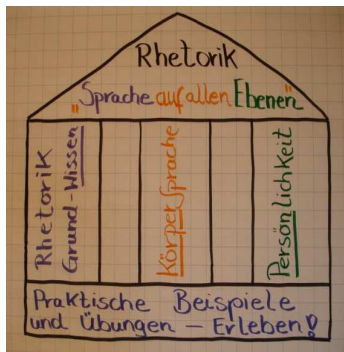 Rhetorik
"Sprache auf allen Ebenen"
Rhetorik
Grund-Wissen
Körpersprache
Persönlichkeit
Praktische Beispiele
und Übungen – Erleben!